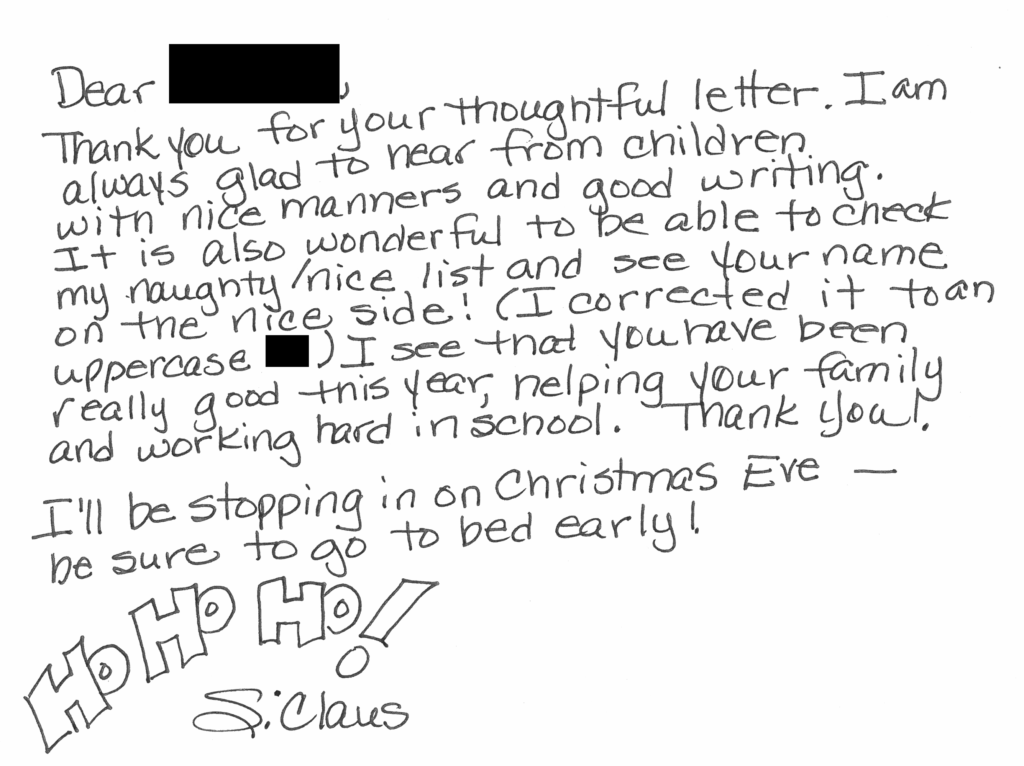 Dear ,
Thank you for your thoughtful letter. I am
always glad to hear from children
with nice manners and good writing.
It is also wonderful to be able to check
my naughty/nice list and see your name
on the nice side! (I corrected it to an
uppercase ) I see that you have been
really good this year, helping your family
and working hard in school. Thank you!
I'll be stopping in on Christmas Eve —
be sure to go to bed early!
Ho Ho Ho!
S. Claus